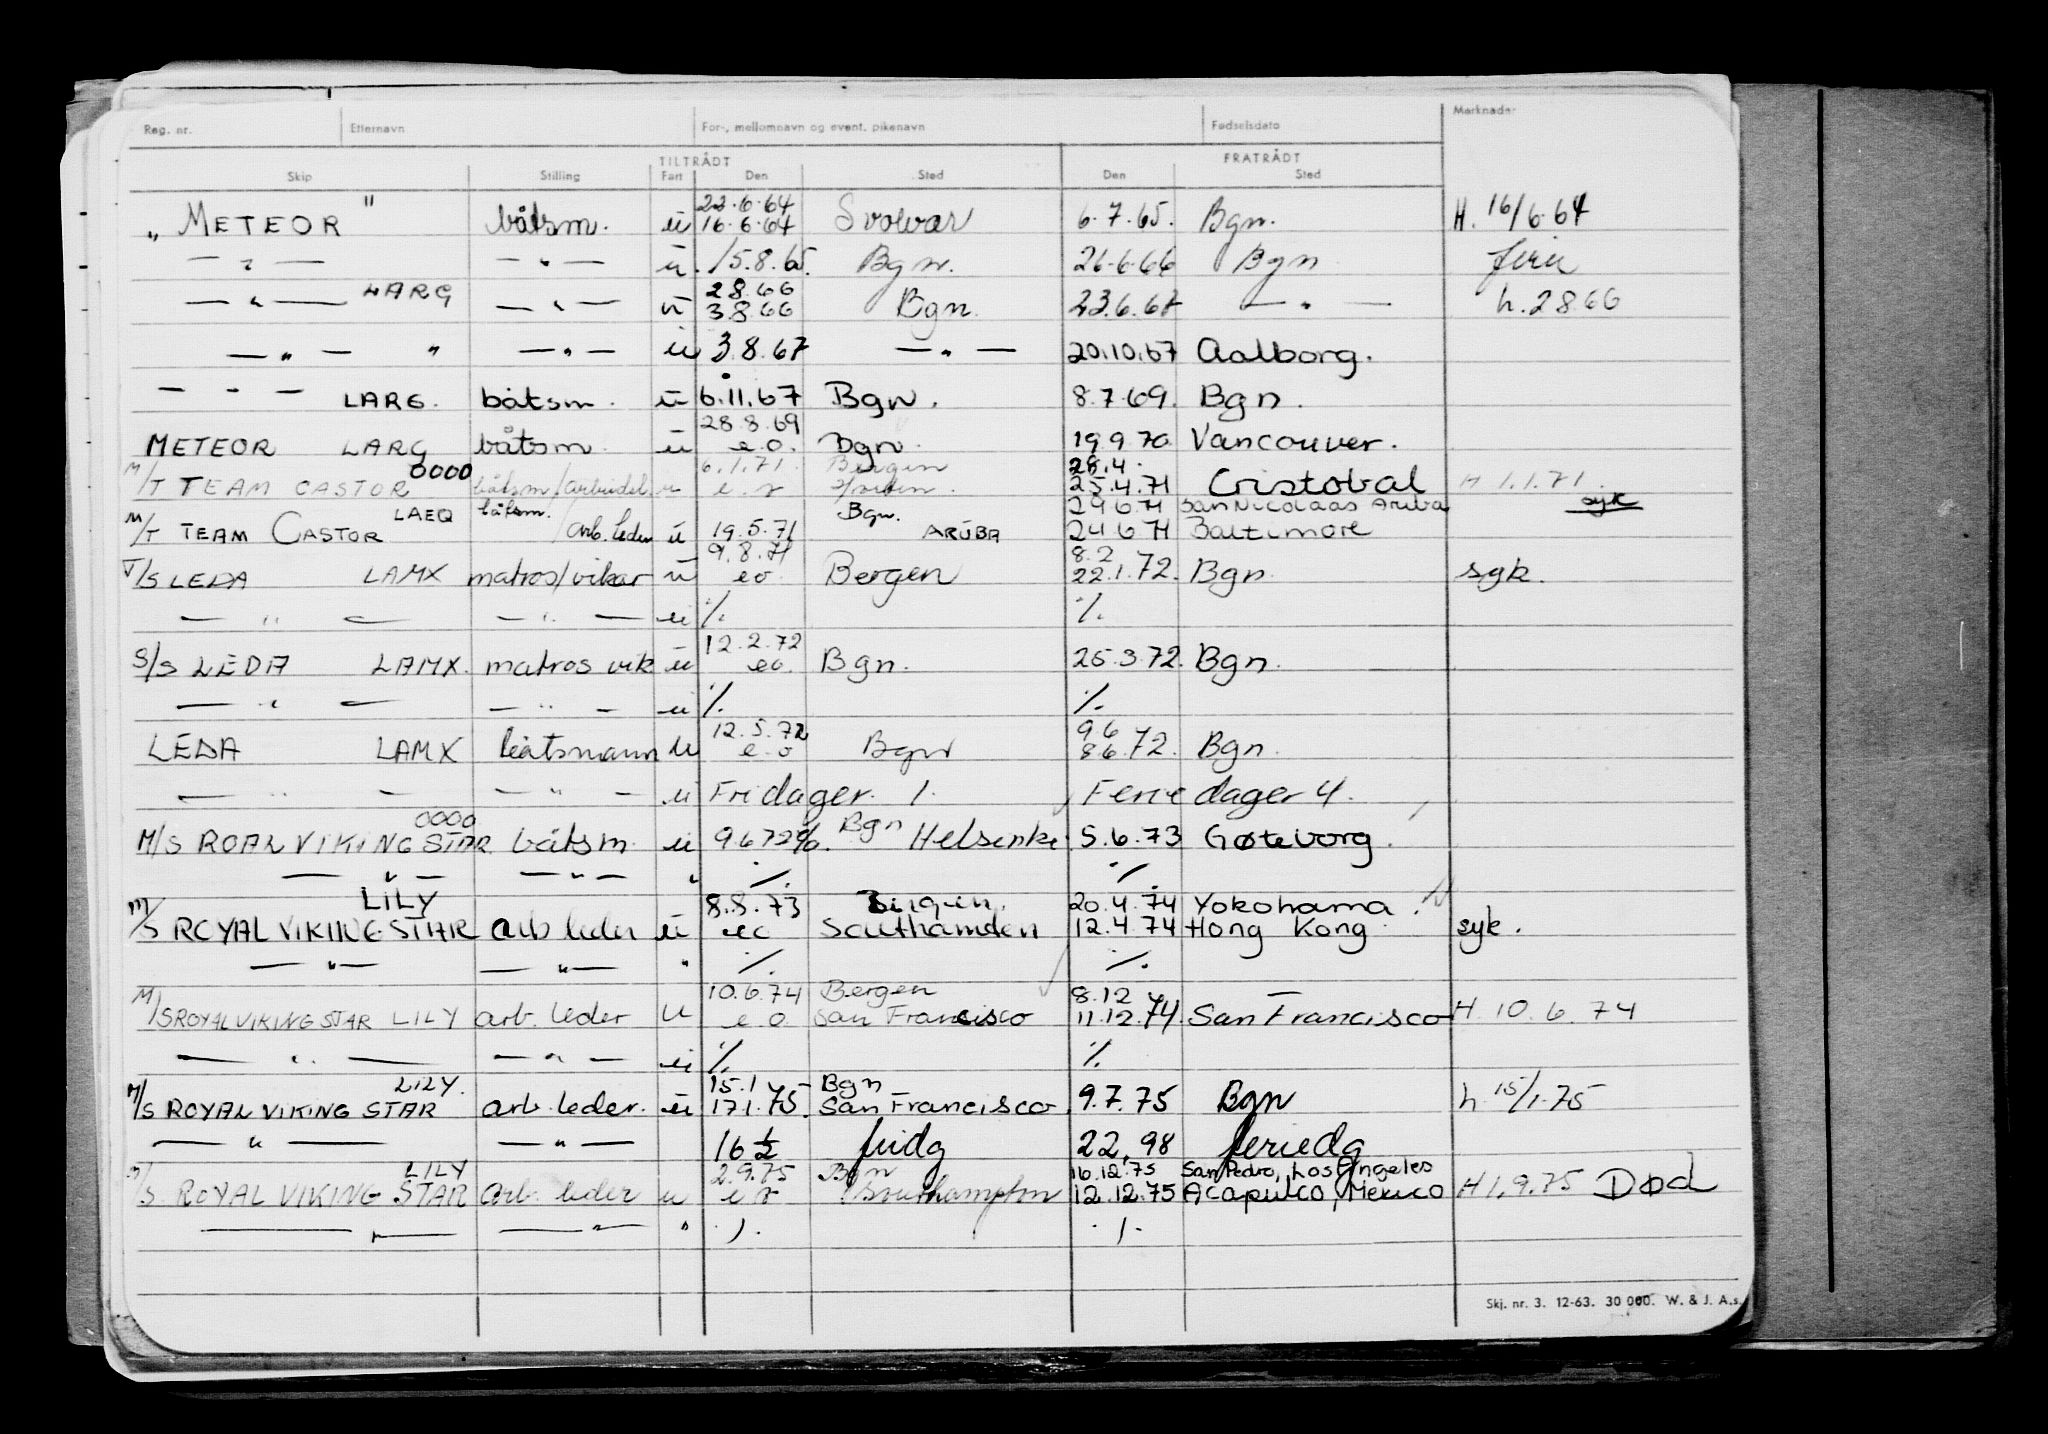 Reg. nr. Etternavn For-, mellomnavn og event. pikenavn Fødselsdato Merknader
TILTRÅDT FRATRÅDT
Skip Stilling Fart Den Sted Den Sted
22.6.64
„ METEOR " båtsm. u 16.6.64 Svolvær 6.7.65. Bgn. H. 16/6.64
— " — — " — u. 15.8.65. Bgn. 26.6.66 Bgn
2866
— " — LARG — " — u 3.8.66 Bgn. 23.6.67 — " — h. 2866
— " — " — " — u 3.8.67 — " — 20.10.67 Aalborg.
— — — LARG. båtsm. u 6.11.67 Bgn. 8.7.69. Bgn.
28.8.69
METEOR LARG båtsm. u e.o. Bgn. 19.9.70 Vancouver.
0000 6.1.71. Bergen 28.4.
M/T TEAM CASTOR båtsm/arbeidsl. u 25.4.71 Cristobal H 1.1.71.
LAEQ båtsm. Bgn. 29.6.71 San Nicolaas Aruba syk
M/T TEAM CASTOR /arb. leder u 19.5.71 ARUBA 24.6.71 Baltimore
9.8.71 8.2
T/S LEDA LAMX matros/vikar u eo Bergen 22.1.72. Bgn. syk.
— " — — " — u ./. ./.
12.2.72
S/S LEDA LAMX. matros vik u eo. Bgn. 25.3.72. Bgn.
— " — — " — u ./. ./.
12.5.72 9.6
LEDA LAMX båtsmann u e.o Bgn 8.6.72. Bgn.
— " — — " — u Fridager. 1. Feriedager 4.
0000 Bgn
M/S ROAL VIKING STAR båtsm. u 9.6.72 %. Helsinki 5.6.73 Gøteborg.
— " — — " — " ./. ./.
LILY 8.8.73 Bergen. 20.4.74 Yokohama.
M/S ROYAL VIKING STAR arb leder u eo Southamden 12.4.74 Hong Kong syk.
— " — — " — " ./. ./.
10.6.74 Bergen 8.12
M/S ROYAL VIKING STAR LILY arb. leder u e.o. San Francisco 11.12.74. San Francisco H 10.6.74
— " — — " — u ./. ./.
LILY. 15.1 Bgn
M/S ROYAL VIKING STAR arb. leder. u 17.1.75. San Francisco. 9.7.75 Bgn h 15/1.75
— " — — " — 16 ½ fridg 22,98 feriedg
LILY 2.9.75 Bgn 16.12.75 San Pedro, Los Angeles
M/S ROYAL VIKING STAR arb. leder u Southampton 12.12.75 Acapulco, Mexico H 1.9.75 Død
— " — — " — " ./. ./.
Skj. nr. 3. 12-63. 30 000. W. & J. A.s.